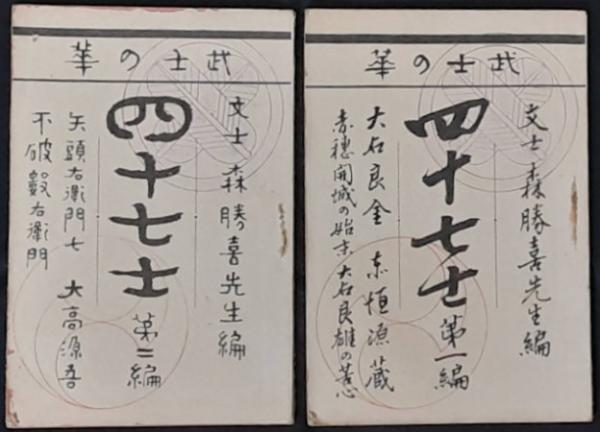 武士の華
文士 森勝喜先生編
四十七士 第一編
大石良金 赤垣源蔵
赤穂開城の始末 大石良雄の苦心
武士の華
文士 森勝喜先生編
四十七士 第二編
矢頭右衛門七 大高源吾
不破數右衛門